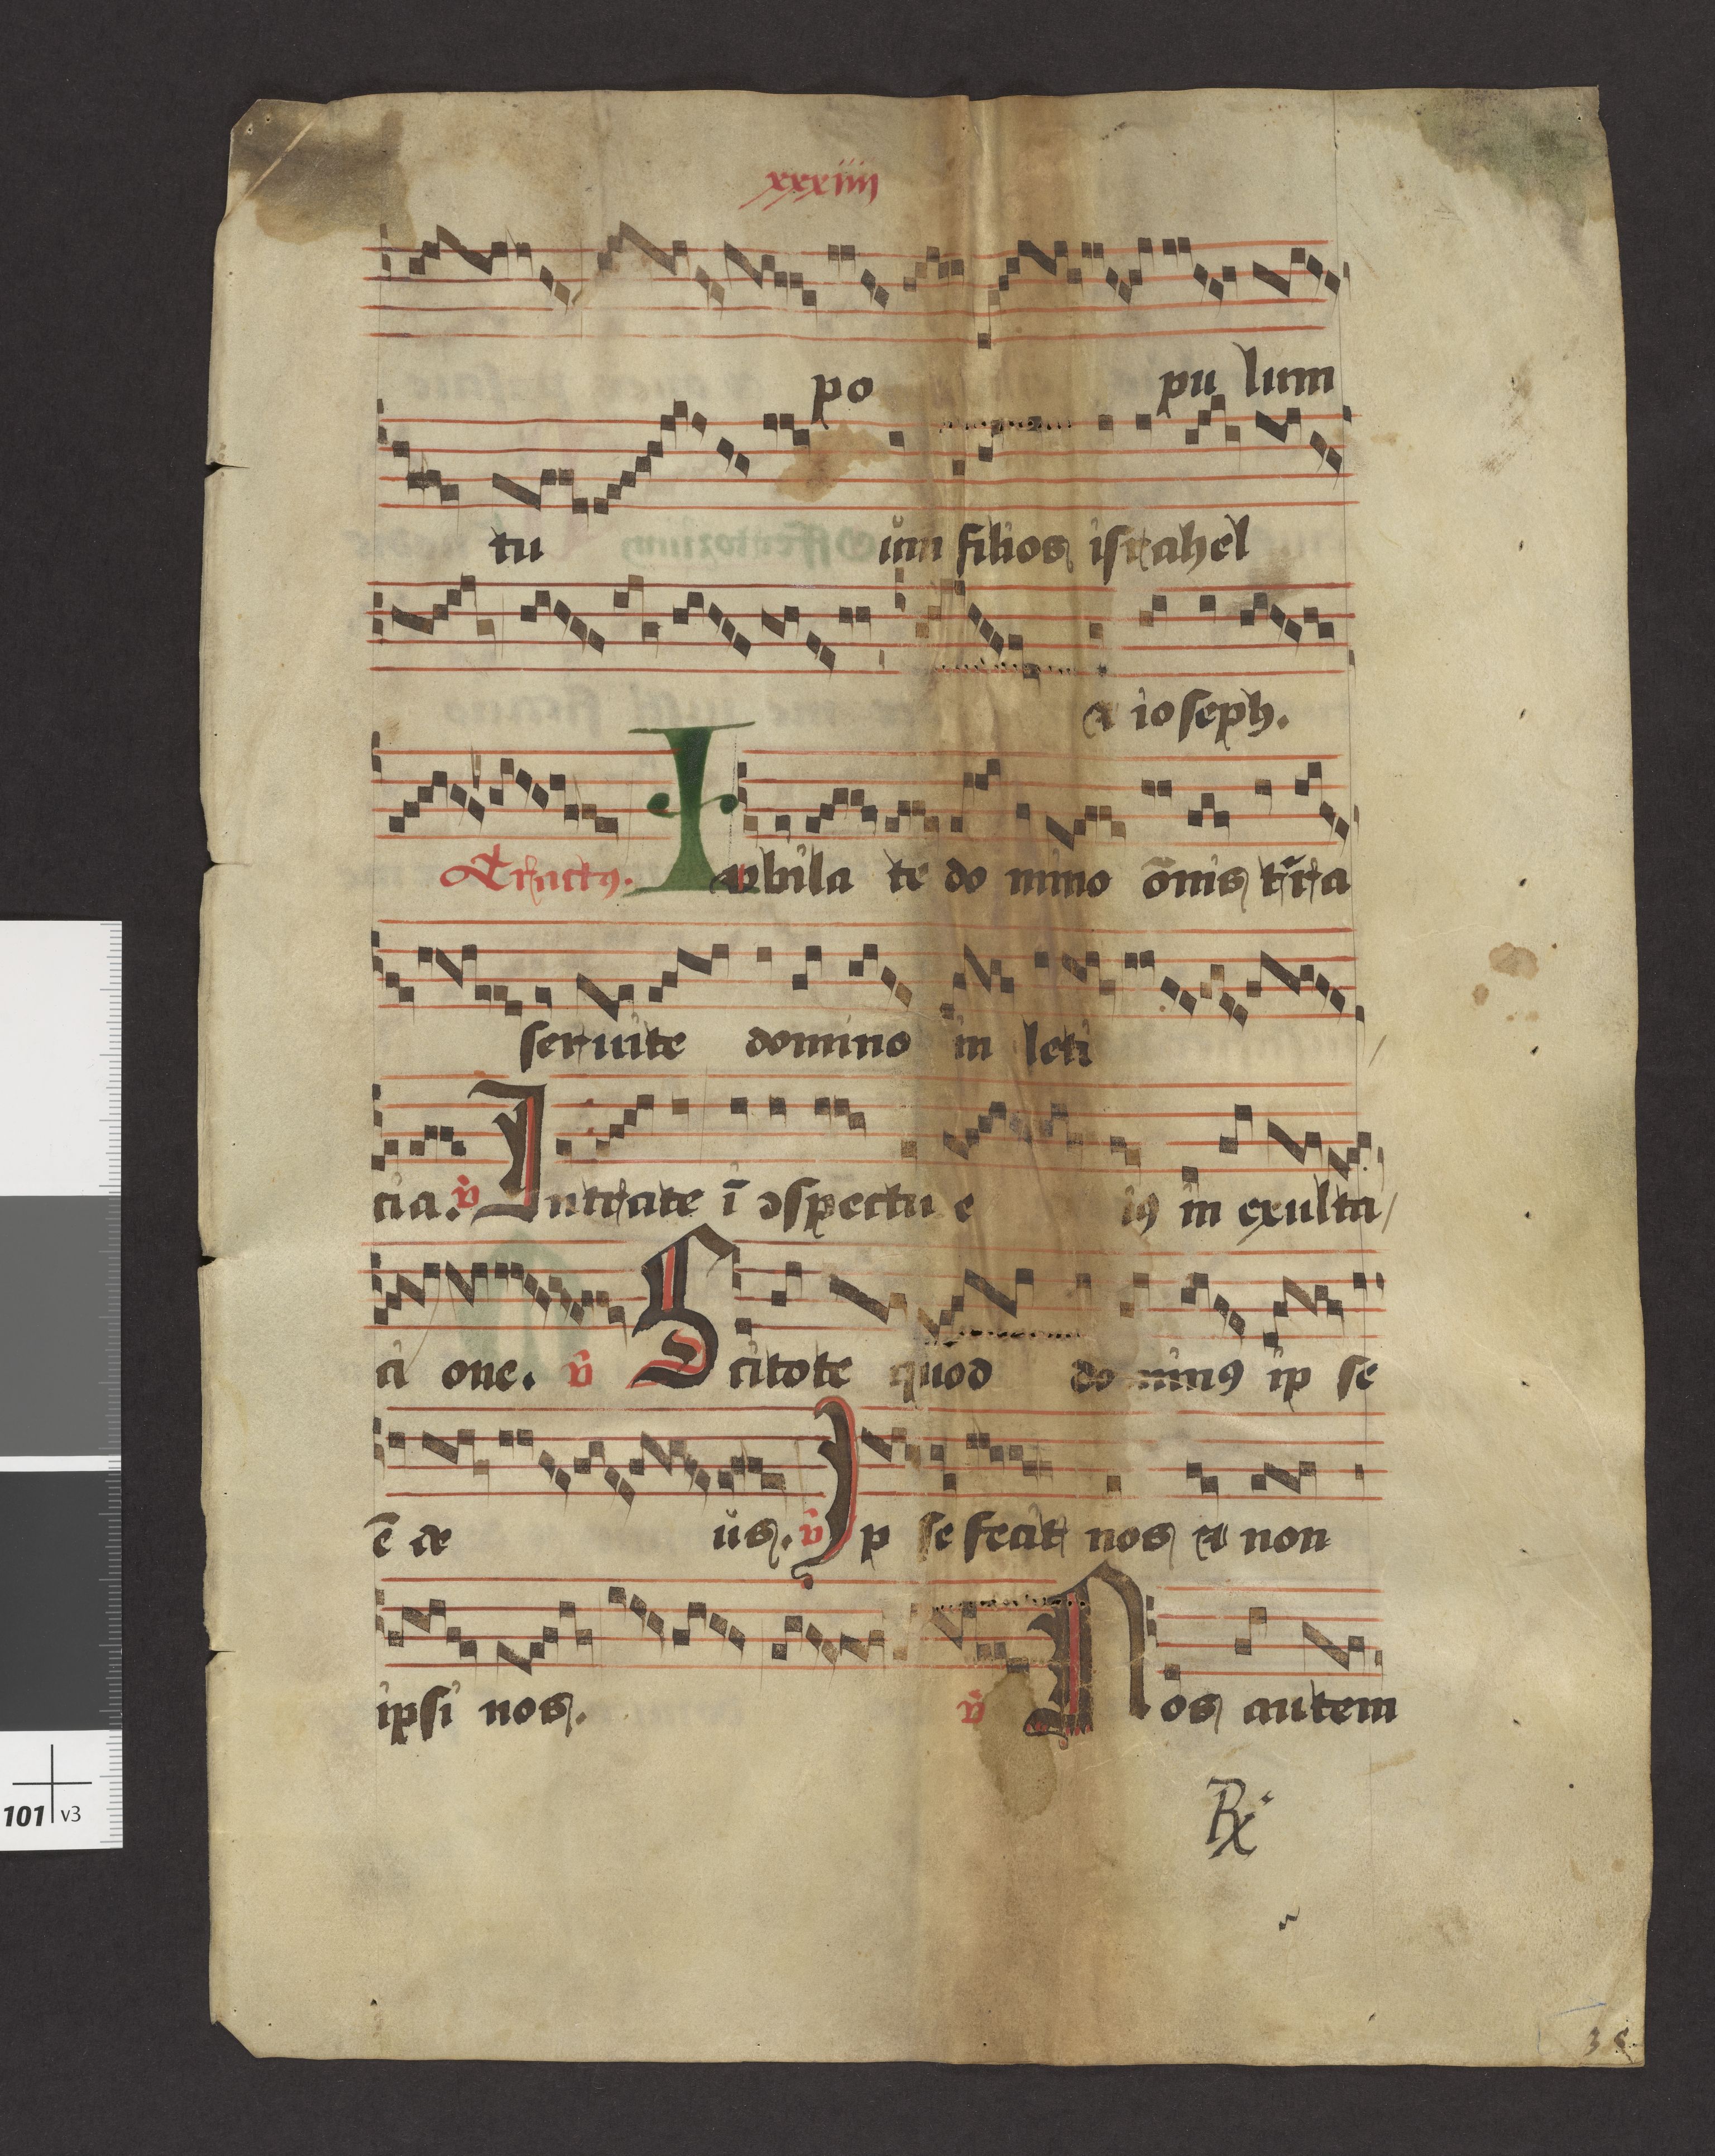 xxxiiij
po pu lum
tu um filios israhel
& ioseph.
Tractꝰ. Iubila te do mino õnis t̃ra
seruite domino in leti
cia. v̊ Intrate ĩ ꝯspectu e iꝰ in exulta/
ci one. v̊ Scitote quod do minꝰ ip se
ẽ de us. v̊ Ip se fecit nos & non
ipsi nos. v̊ Nos autem
Rx
38
101 v3